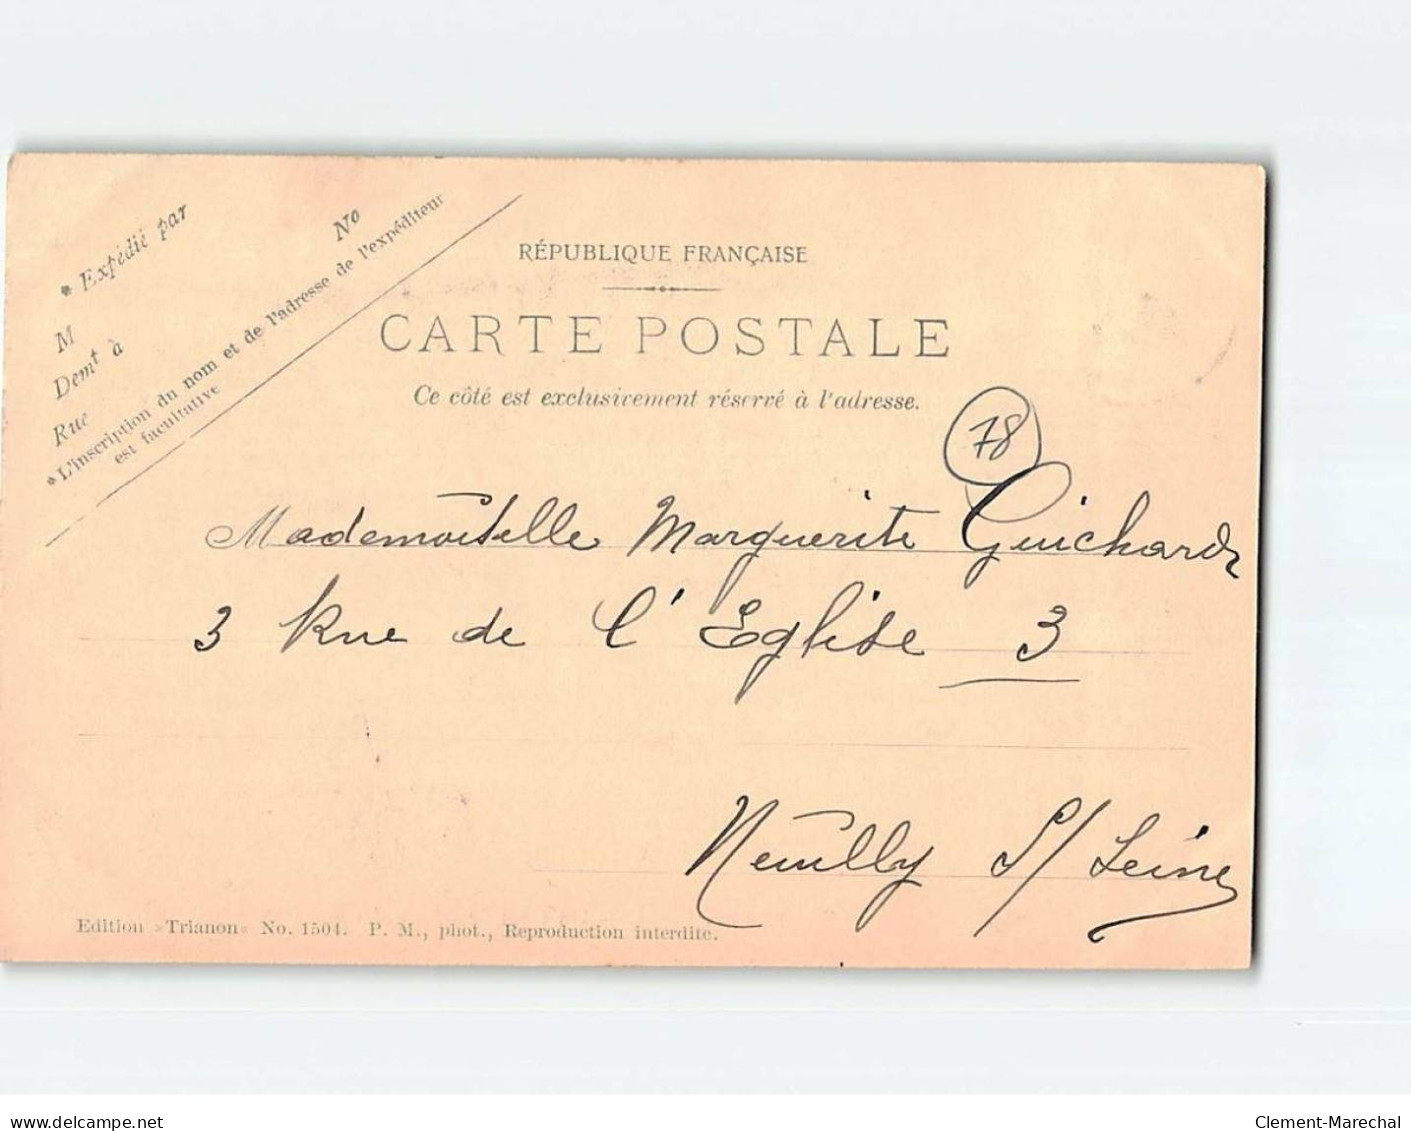 * Expédié par
No
M
Demt à
Rue
*L'inscription du nom et de l'adresse de l'expéditeur
est facultative
RÉPUBLIQUE FRANÇAISE
CARTE POSTALE
Ce côté est exclusivement réservé à l'adresse.
78
Mademoiselle Marguerite Guichard
3 Rue de l'Eglise 3
Neuilly S/ Seine
Edition »Trianon« No. 1504. P. M., phot., Reproduction interdite.
www.delcampe.net
Clement-Marechal